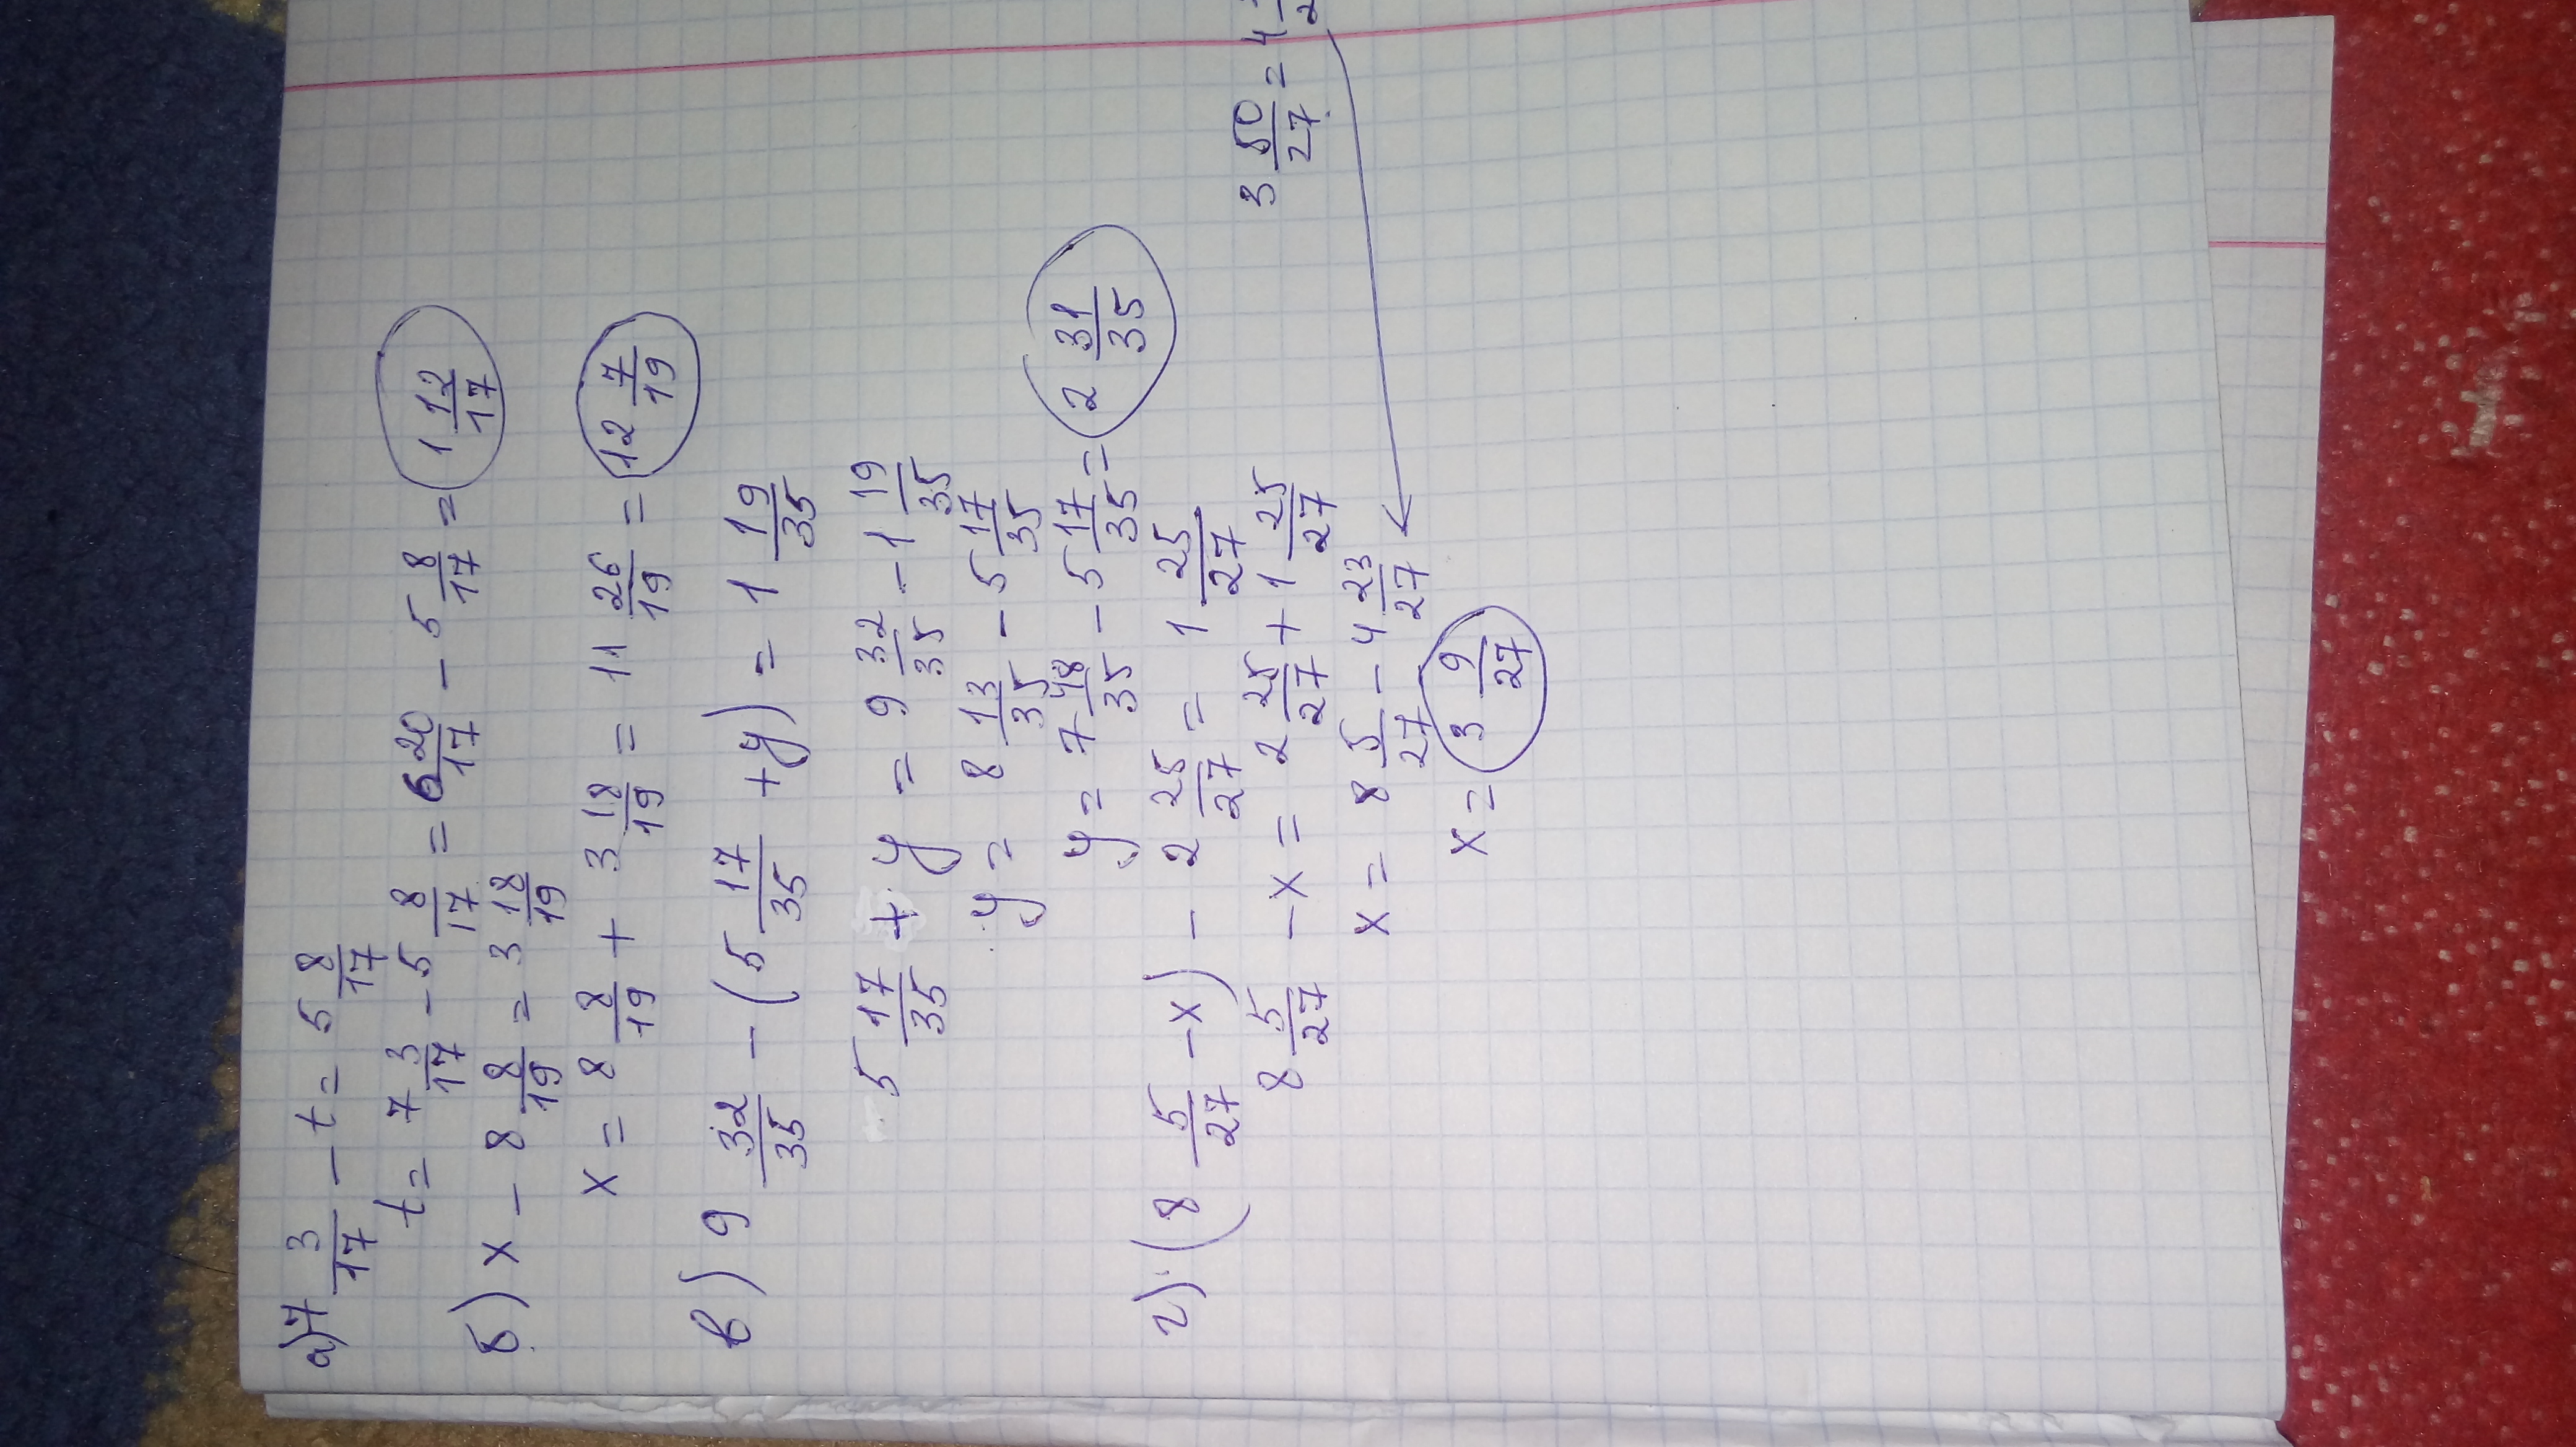 а) 7 3/17 - t = 5 8/17
t = 7 3/17 - 5 8/17 = 6 20/17 - 5 8/17 = 1 12/17
б) x - 8 8/19 = 3 18/19
x = 8 8/19 + 3 18/19 = 11 26/19 = 12 7/19
в) 9 32/35 - (5 17/35 + y) = 1 19/35
5 17/35 + y = 9 32/35 - 1 19/35
y = 8 13/35 - 5 17/35
y = 7 48/35 - 5 17/35 = 2 31/35
г) (8 5/27 - x) - 2 25/27 = 1 25/27
8 5/27 - x = 2 25/27 + 1 25/27
3 50/27 = 4
x = 8 5/27 - 4 23/27
x = 3 9/27